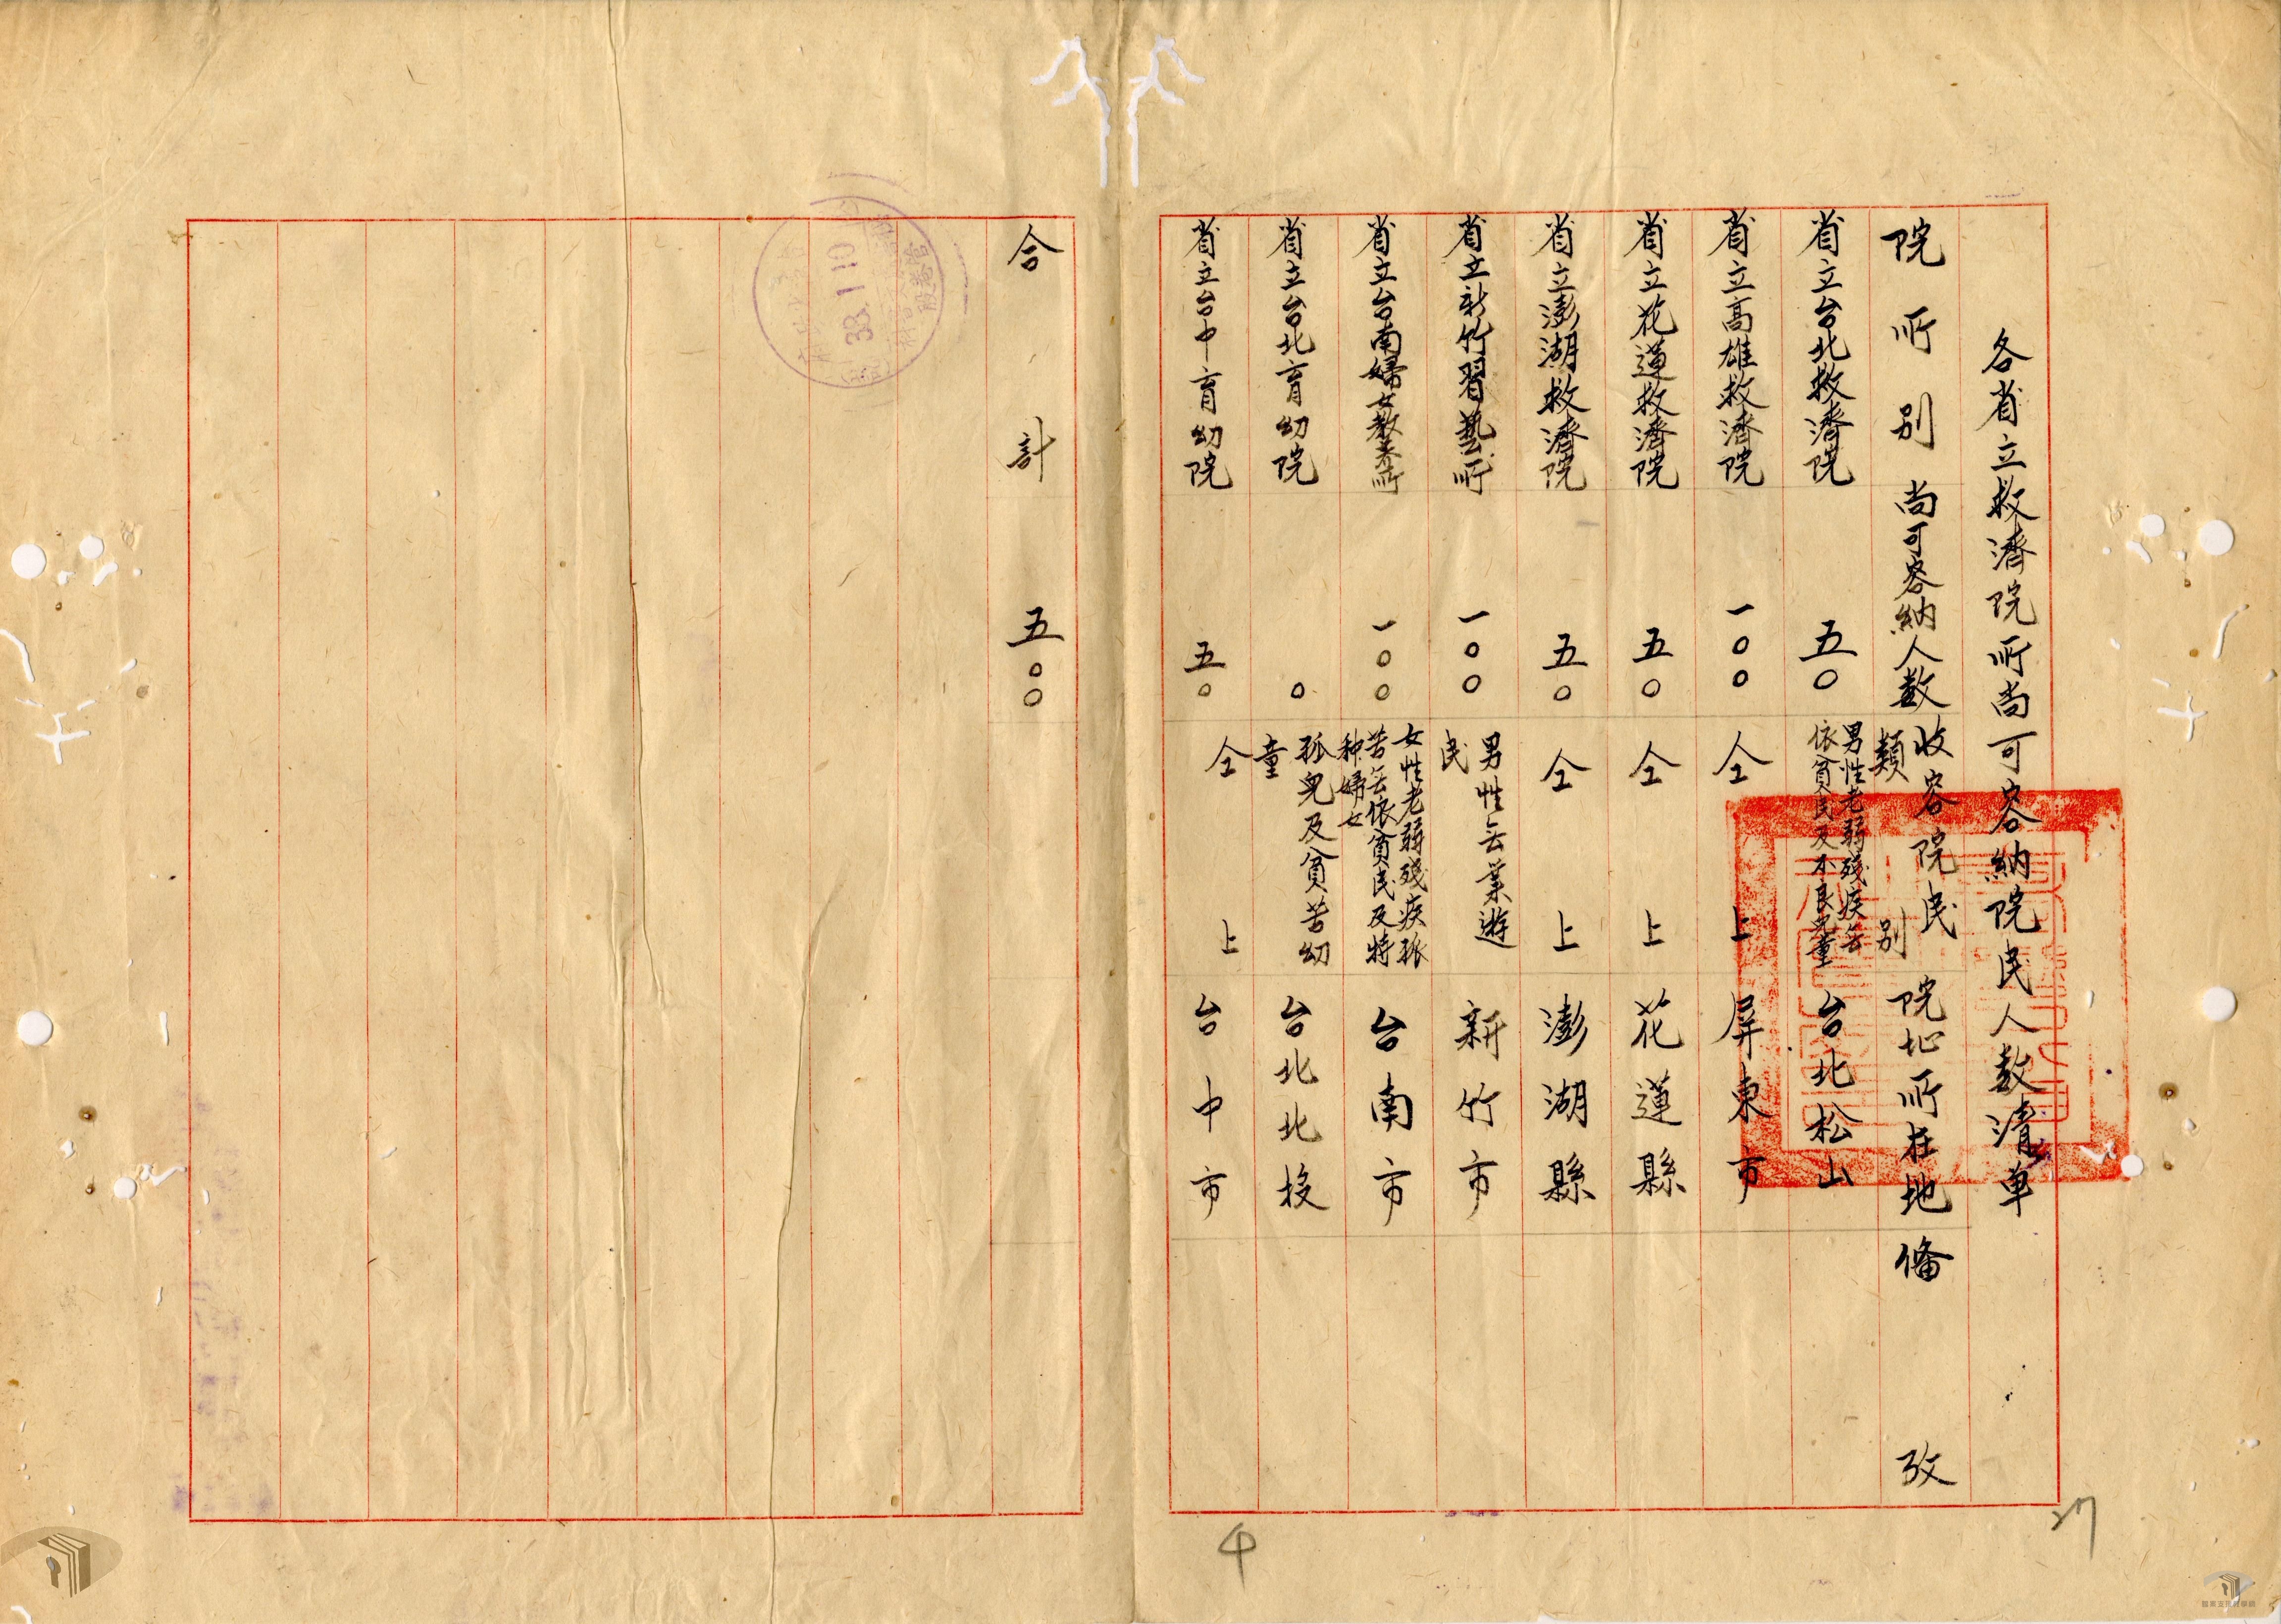 各省立救濟院所尚可容納院民人數清单
院所別
尚可容納人数
收容院民
類別
院址所在地
備攷
省立台北救濟院
五〇
男性老弱殘疾無
依貧民及不良児童
台北松山
省立高雄救濟院
一〇〇
仝上
屏東市
省立花蓮救濟院
五〇
仝上
花蓮縣
省立澎湖救濟院
五〇
仝上
澎湖縣
省立新竹習藝所
一〇〇
男性無業遊
民
新竹市
省立台南婦女教养所
一〇〇
女性老弱殘疾孤
苦無依貧民及特
种婦女
台南市
省立台北育幼院
〇
孤児及貧苦幼
童
台北北投
省立台中育幼院
五〇
仝上
台中市
合計
五〇〇
38.1.10
27
4